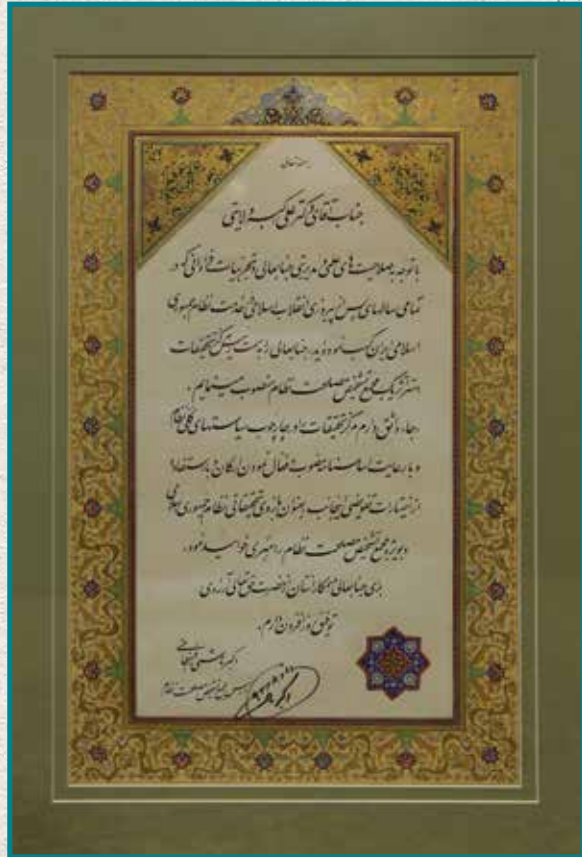 بسمه تعالی
جناب آقای دکتر علی اکبر ولایتی
با توجه به صلاحیت های علمی و مدیریتی جنابعالی و تجربیات فراوانی که در
تمامی سالهای پس از پیروزی انقلاب اسلامی در خدمت نظام جمهوری
اسلامی ایران کسب نموده اید، جنابعالی را به ریاست مرکز تحقیقات
استراتژیک مجمع تشخیص مصلحت نظام منصوب مینمایم.
رجاء واثق دارم مرکز تحقیقات را در چارچوب سیاستهای کلی نظام
و با رعایت اساسنامه مصوب و فعال نمودن ارکان و با استفاده
از اختیارات تفویضی اینجانب بعنوان بازوی تحقیقاتی نظام جمهوری اسلامی
و بویژه مجمع تشخیص مصلحت نظام راهبری خواهید نمود.
برای جنابعالی و همکارانتان از حضرت حق تعالی آرزوی
توفیق روز افزون دارم.
اکبر هاشمی رفسنجانی
رئیس مجمع تشخیص مصلحت نظام